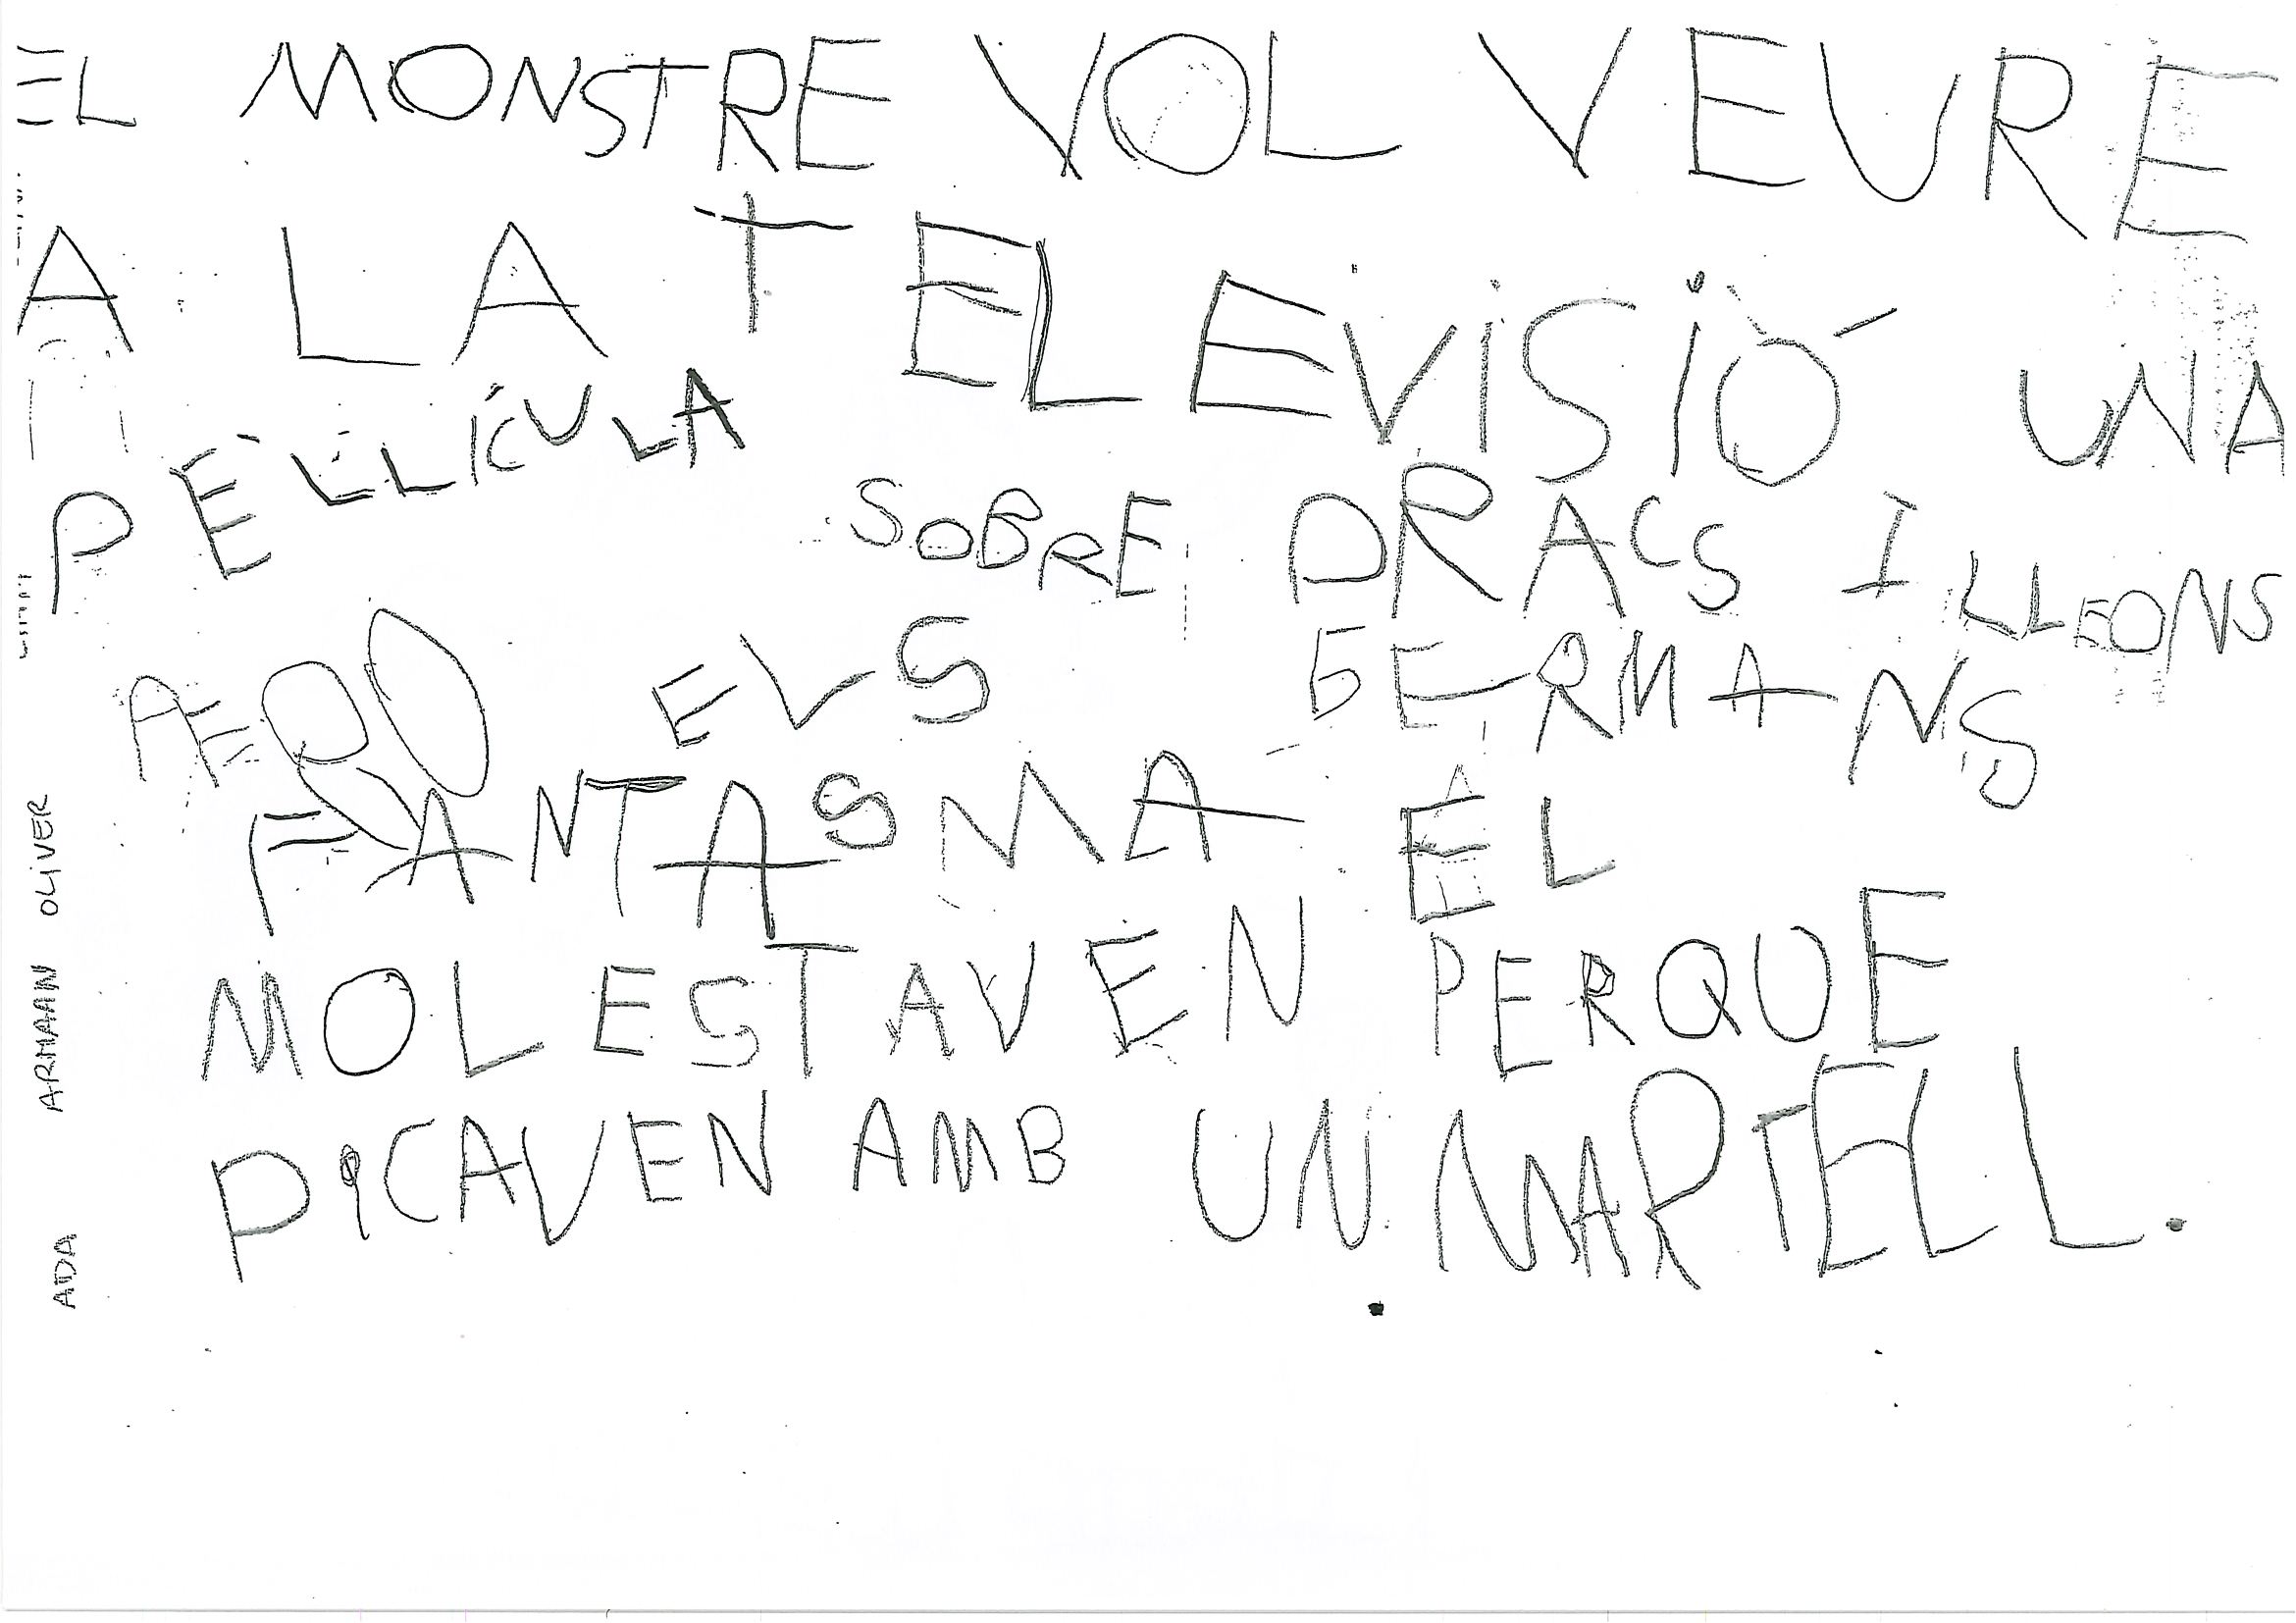 EL MONSTRE VOL VEURE
A LA TELEVISIÓ UNA
PEL·LÍCULA SOBRE DRACS I LLEONS
PERO ELS GERMANS
FANTASMA EL
MOLESTAVEN PERQUE
PICAVEN AMB UN MARTELL.
ADA ARMAAN OLIVER